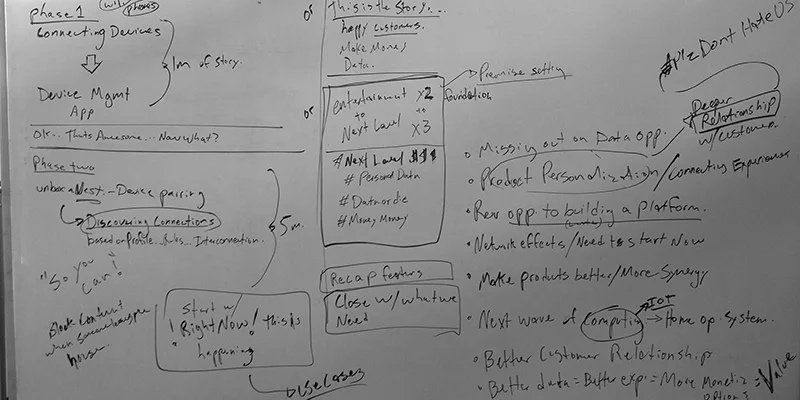 Phase 1
Connecting Devices
Device Mgmt
App
1m of story.
OK... Thats Awesome... Now what?
Phase two
unbox a Nest. - Device pairing
Discovering Connections
based on profile.. Rules... Interconnection.
5m.
"So you
can!
Block Content
when someone leaves
house.
Start w/
"Right Now! this is
happening
Use Cases
or
This is the Story...
happy customers.
Make Money
Data.
or
entertainment x2
to
Next Level x3
Premise setting
foundation
# Next Level $$$
# Personal Data
# Data or die
# Money Money
Recap features
Close w/ what we
Need
Plz Dont Hate US
Deeper
Relationship
w/ customer.
• Missing out on Data opp.
• Product Personalization / Connecting Experiences
• Rev opp to building a platform.
• Network effects / Need to start Now
• Make products better / More Synergy
• Next wave of Computing → Home op. System.
IOT
• Better Customer Relationship
• Better data = Better exp. = More Monetiz
options
= Value